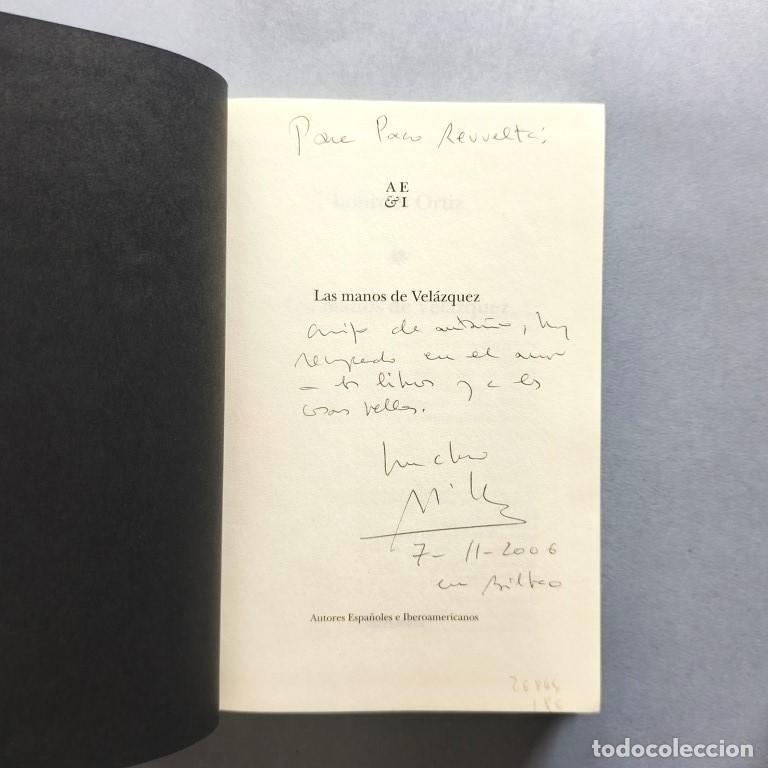 Para Paco Revuelta:
A E
& I
Las manos de Velázquez
amigo de antaño, hoy
recuperado en el amor
a los libros y a las
cosas bellas.
7-11-2006
en Bilbao
Autores Españoles e Iberoamericanos
todocoleccion